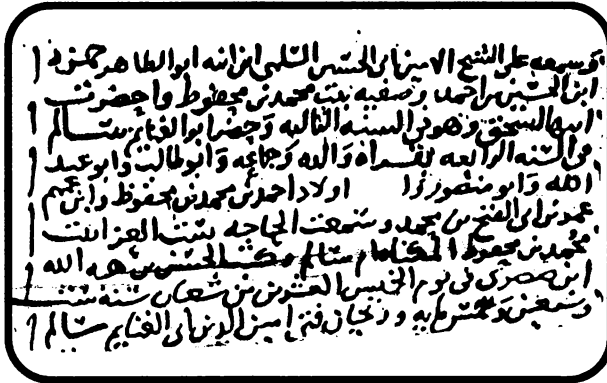 وسمعه على الشيخ الامين ابى الحسين السلمى ابن ابنه ابو الطاهر حمزه
ابن الحسين بن احمد وصفيه بنت محمد بن محفوظ واحضرت
ابنها اسحق وهو فى السنه الثالثه وحضر ابو الغنايم سالم
فى السنه الرابعه بقراة والده وجماعه وابو طالب وابو عبد
الله وابو منصور اولاد احمد بن محمد بن محفوظ وابن عمهم
عمر بن ابى الفتح بن محمد وسمعت الحاجه ست العز ابنت
محمد بن محفوظ سالم وكتب الحسن بن هبه الله
ابن صصرى فى يوم الخميس العشرين من شعبان سنه ست
وستين وخمس مايه امين الدين ابى الغنايم سالم